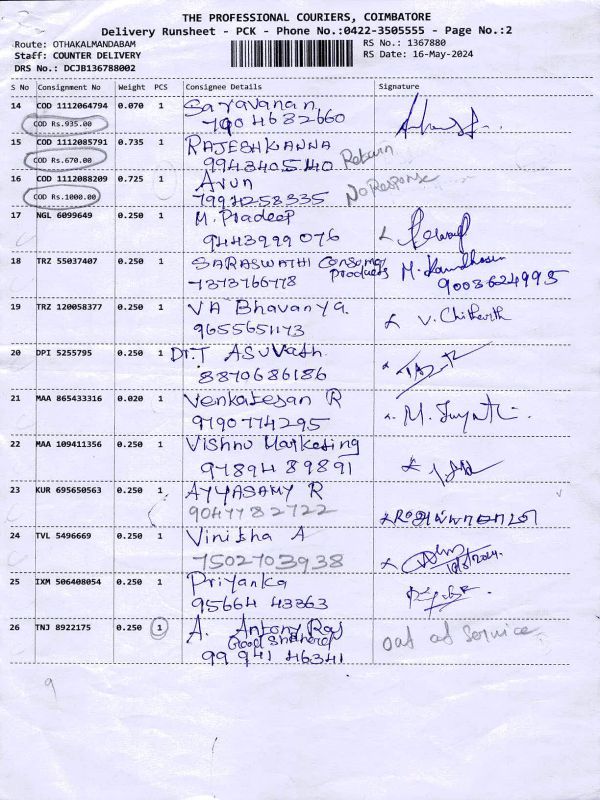 THE PROFESSIONAL COURIERS, COIMBATORE
Delivery Runsheet - PCK - Phone No.:0422-3505555 - Page No.:2
Route: OTHAKALMANDABAM RS No.: 1367880
Staff: COUNTER DELIVERY RS Date: 16-May-2024
DRS No.: DCJB136788002
S No Consignment No Weight PCS Consignee Details Signature
14 COD 1112064794 0.070 1 Saravanan
COD Rs.935.00 7904682660
15 COD 1112085791 0.735 1 RAJESHKANNA
COD Rs.670.00 9943405140 Return
16 COD 1112088209 0.725 1 Arun No Response
COD Rs.1000.00 7994258335
17 NGL 6099649 0.250 1 M. Pradeep
9443999076
18 TRZ 55037407 0.250 1 SARASWATHI Consumer Products
7373766778 9003624995
19 TRZ 120058377 0.250 1 VA Bhavanya. V. Chitharth
9655651173
20 DPI 5255795 0.250 1 Dr.T ASUVath
8870686186
21 MAA 865433316 0.020 1 Venkatesan R
9790774295
22 MAA 109411356 0.250 1 Vishnu Marketing
97894 89891
23 KUR 695650563 0.250 1 AYYASAMY R
9047782722
24 TVL 5496669 0.250 1 Vinitha A
7502703938
25 IXM 506408054 0.250 1 Priyanka
95664 43363
26 TNJ 8922175 0.250 1 A. Antony Raj
Good Shepherd out of Service
99941 46341
9